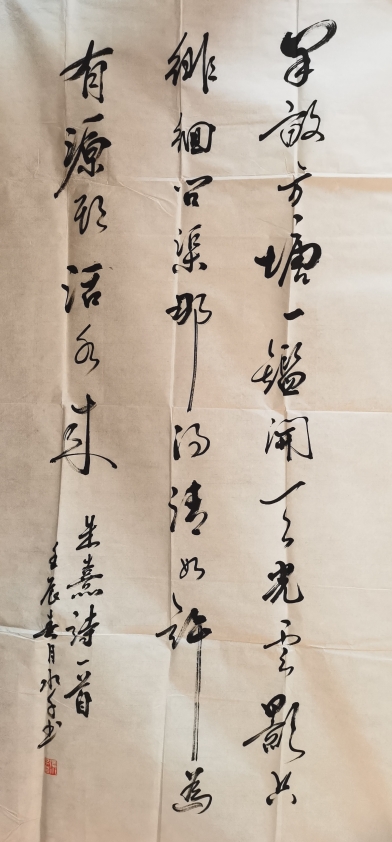 半畝方塘一鑑開天光雲影共
徘徊問渠那得清如許為
有源頭活水来
朱熹詩一首
壬辰春月水子书